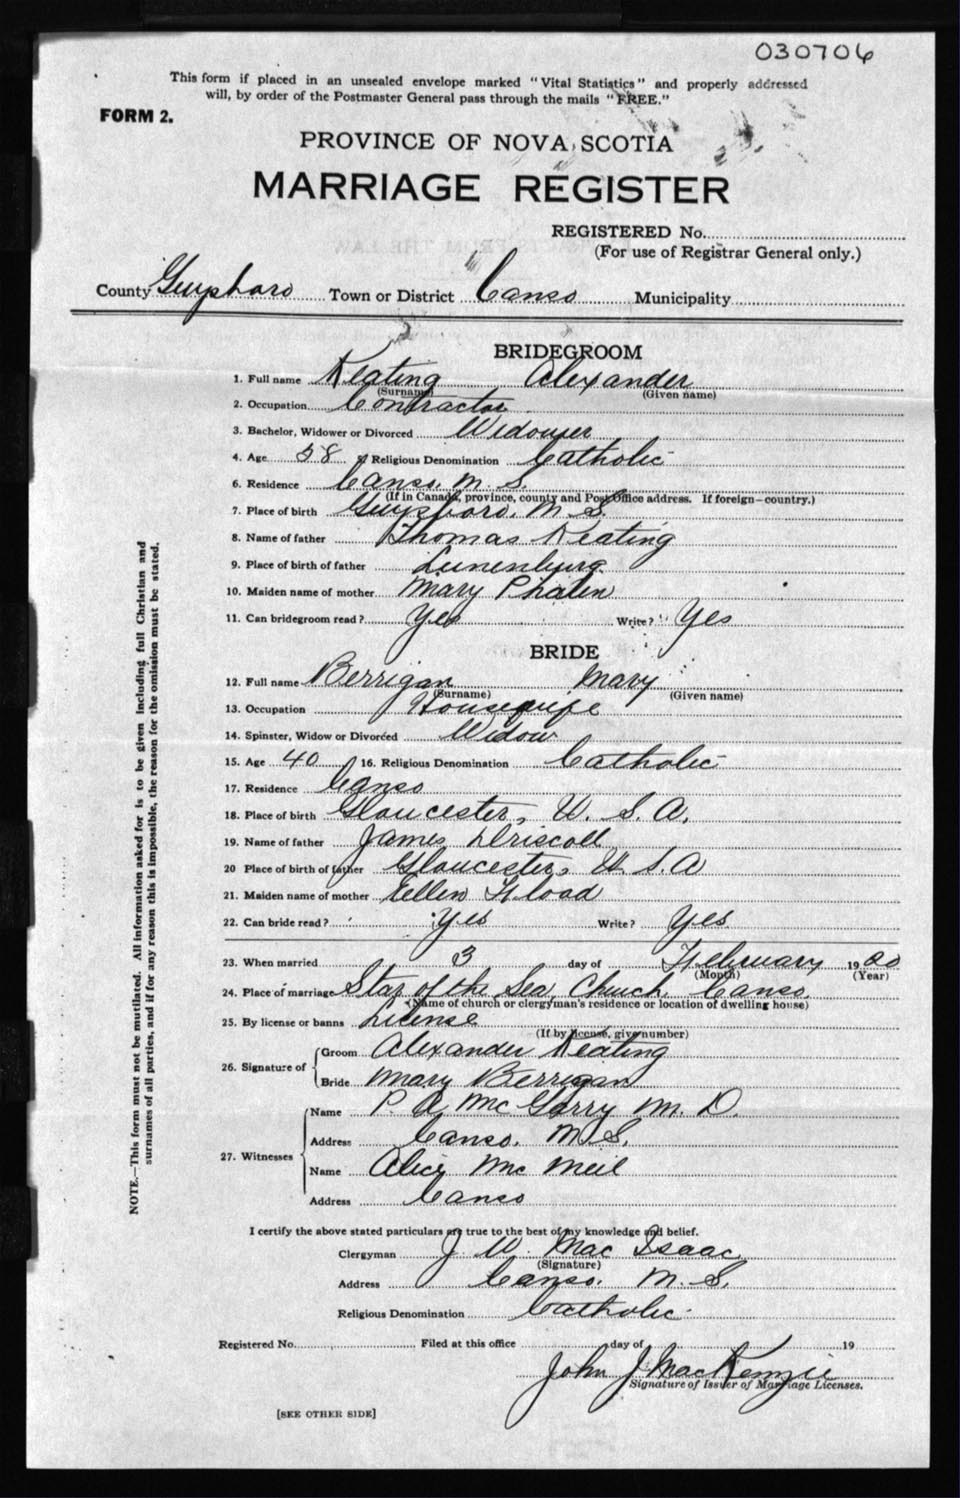 030706
This form if placed in an unsealed envelope marked "Vital Statistics" and properly addressed
will, by order of the Postmaster General pass through the mails "FREE."
FORM 2.
PROVINCE OF NOVA SCOTIA
MARRIAGE REGISTER
REGISTERED No.
(For use of Registrar General only.)
County Guysboro Town or District Canso Municipality
BRIDEGROOM
1. Full name Keating Alexander
(Surname) (Given name)
2. Occupation Contractor
3. Bachelor, Widower or Divorced Widower
4. Age 58 Religious Denomination Catholic
6. Residence Canso, N. S.
(If in Canada, province, county and Post Office address. If foreign—country.)
7. Place of birth Guysboro. N. S.
8. Name of father Thomas Keating
9. Place of birth of father Lunenburg
10. Maiden name of mother Mary Phalen
11. Can bridegroom read? Yes Write? Yes
BRIDE
12. Full name Berrigan Mary
(Surname) (Given name)
13. Occupation Housewife
14. Spinster, Widow or Divorced Widow
15. Age 40 16. Religious Denomination Catholic
17. Residence Canso
18. Place of birth Gloucester, U. S. A.
19. Name of father James Driscoll
20 Place of birth of father Gloucester, U. S. A
21. Maiden name of mother Ellen Flood
22. Can bride read? Yes Write? Yes
23. When married 3 day of February 1920
(Month) (Year)
24. Place of marriage Star of the Sea, Church, Canso,
(Name of church or clergyman's residence or location of dwelling house)
25. By license or banns License
(If by license, give number)
26. Signature of
Groom Alexander Keating
Bride Mary Berrigan
27. Witnesses
Name P. A. McGarry M. D.
Address Canso. N. S.
Name Alice McNeil
Address Canso
I certify the above stated particulars are true to the best of my knowledge and belief.
Clergyman J W. MacIsaac
(Signature)
Address Canso. N. S.
Religious Denomination Catholic.
Registered No. Filed at this office day of 19
John J. MacKenzie
Signature of Issuer of Marriage Licenses.
[SEE OTHER SIDE]
NOTE.—This form must not be mutilated. All information asked for is to be given including full Christian and
surnames of all parties, and if for any reason this is impossible, the reason for the omission must be stated.